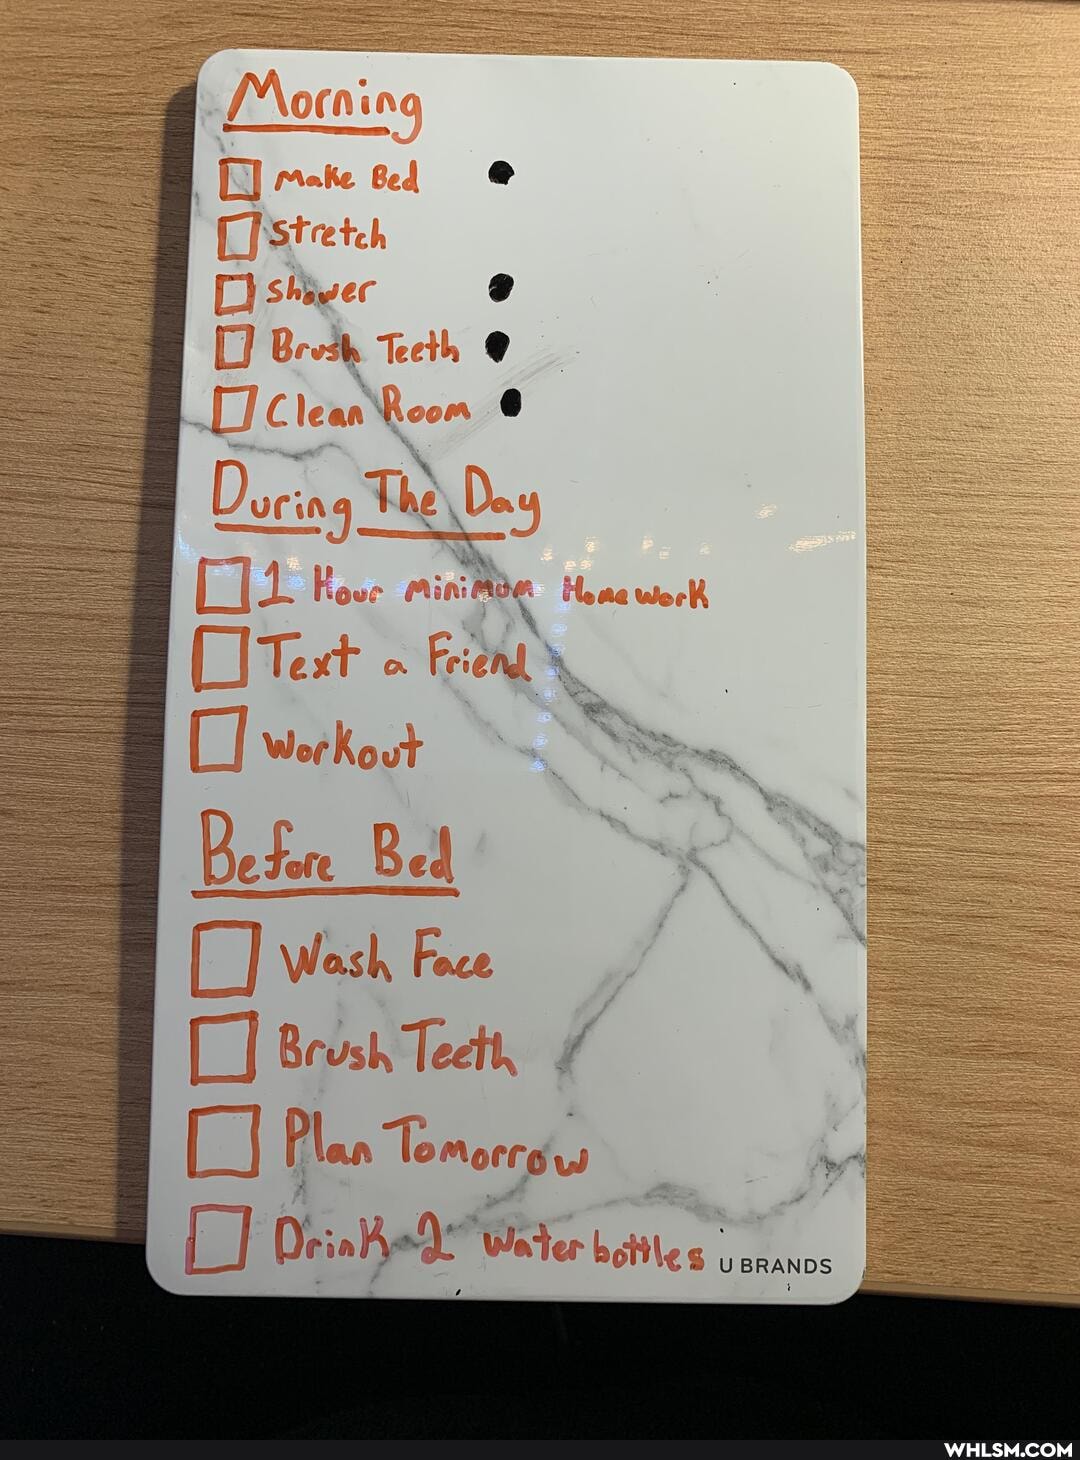 Morning
Make Bed
stretch
shower
Brush Teeth
Clean Room
During The Day
1 Hour minimum Homework
Text a Friend
Workout
Before Bed
Wash Face
Brush Teeth
Plan Tomorrow
Drink 2 water bottles
U BRANDS
WHLSM.COM